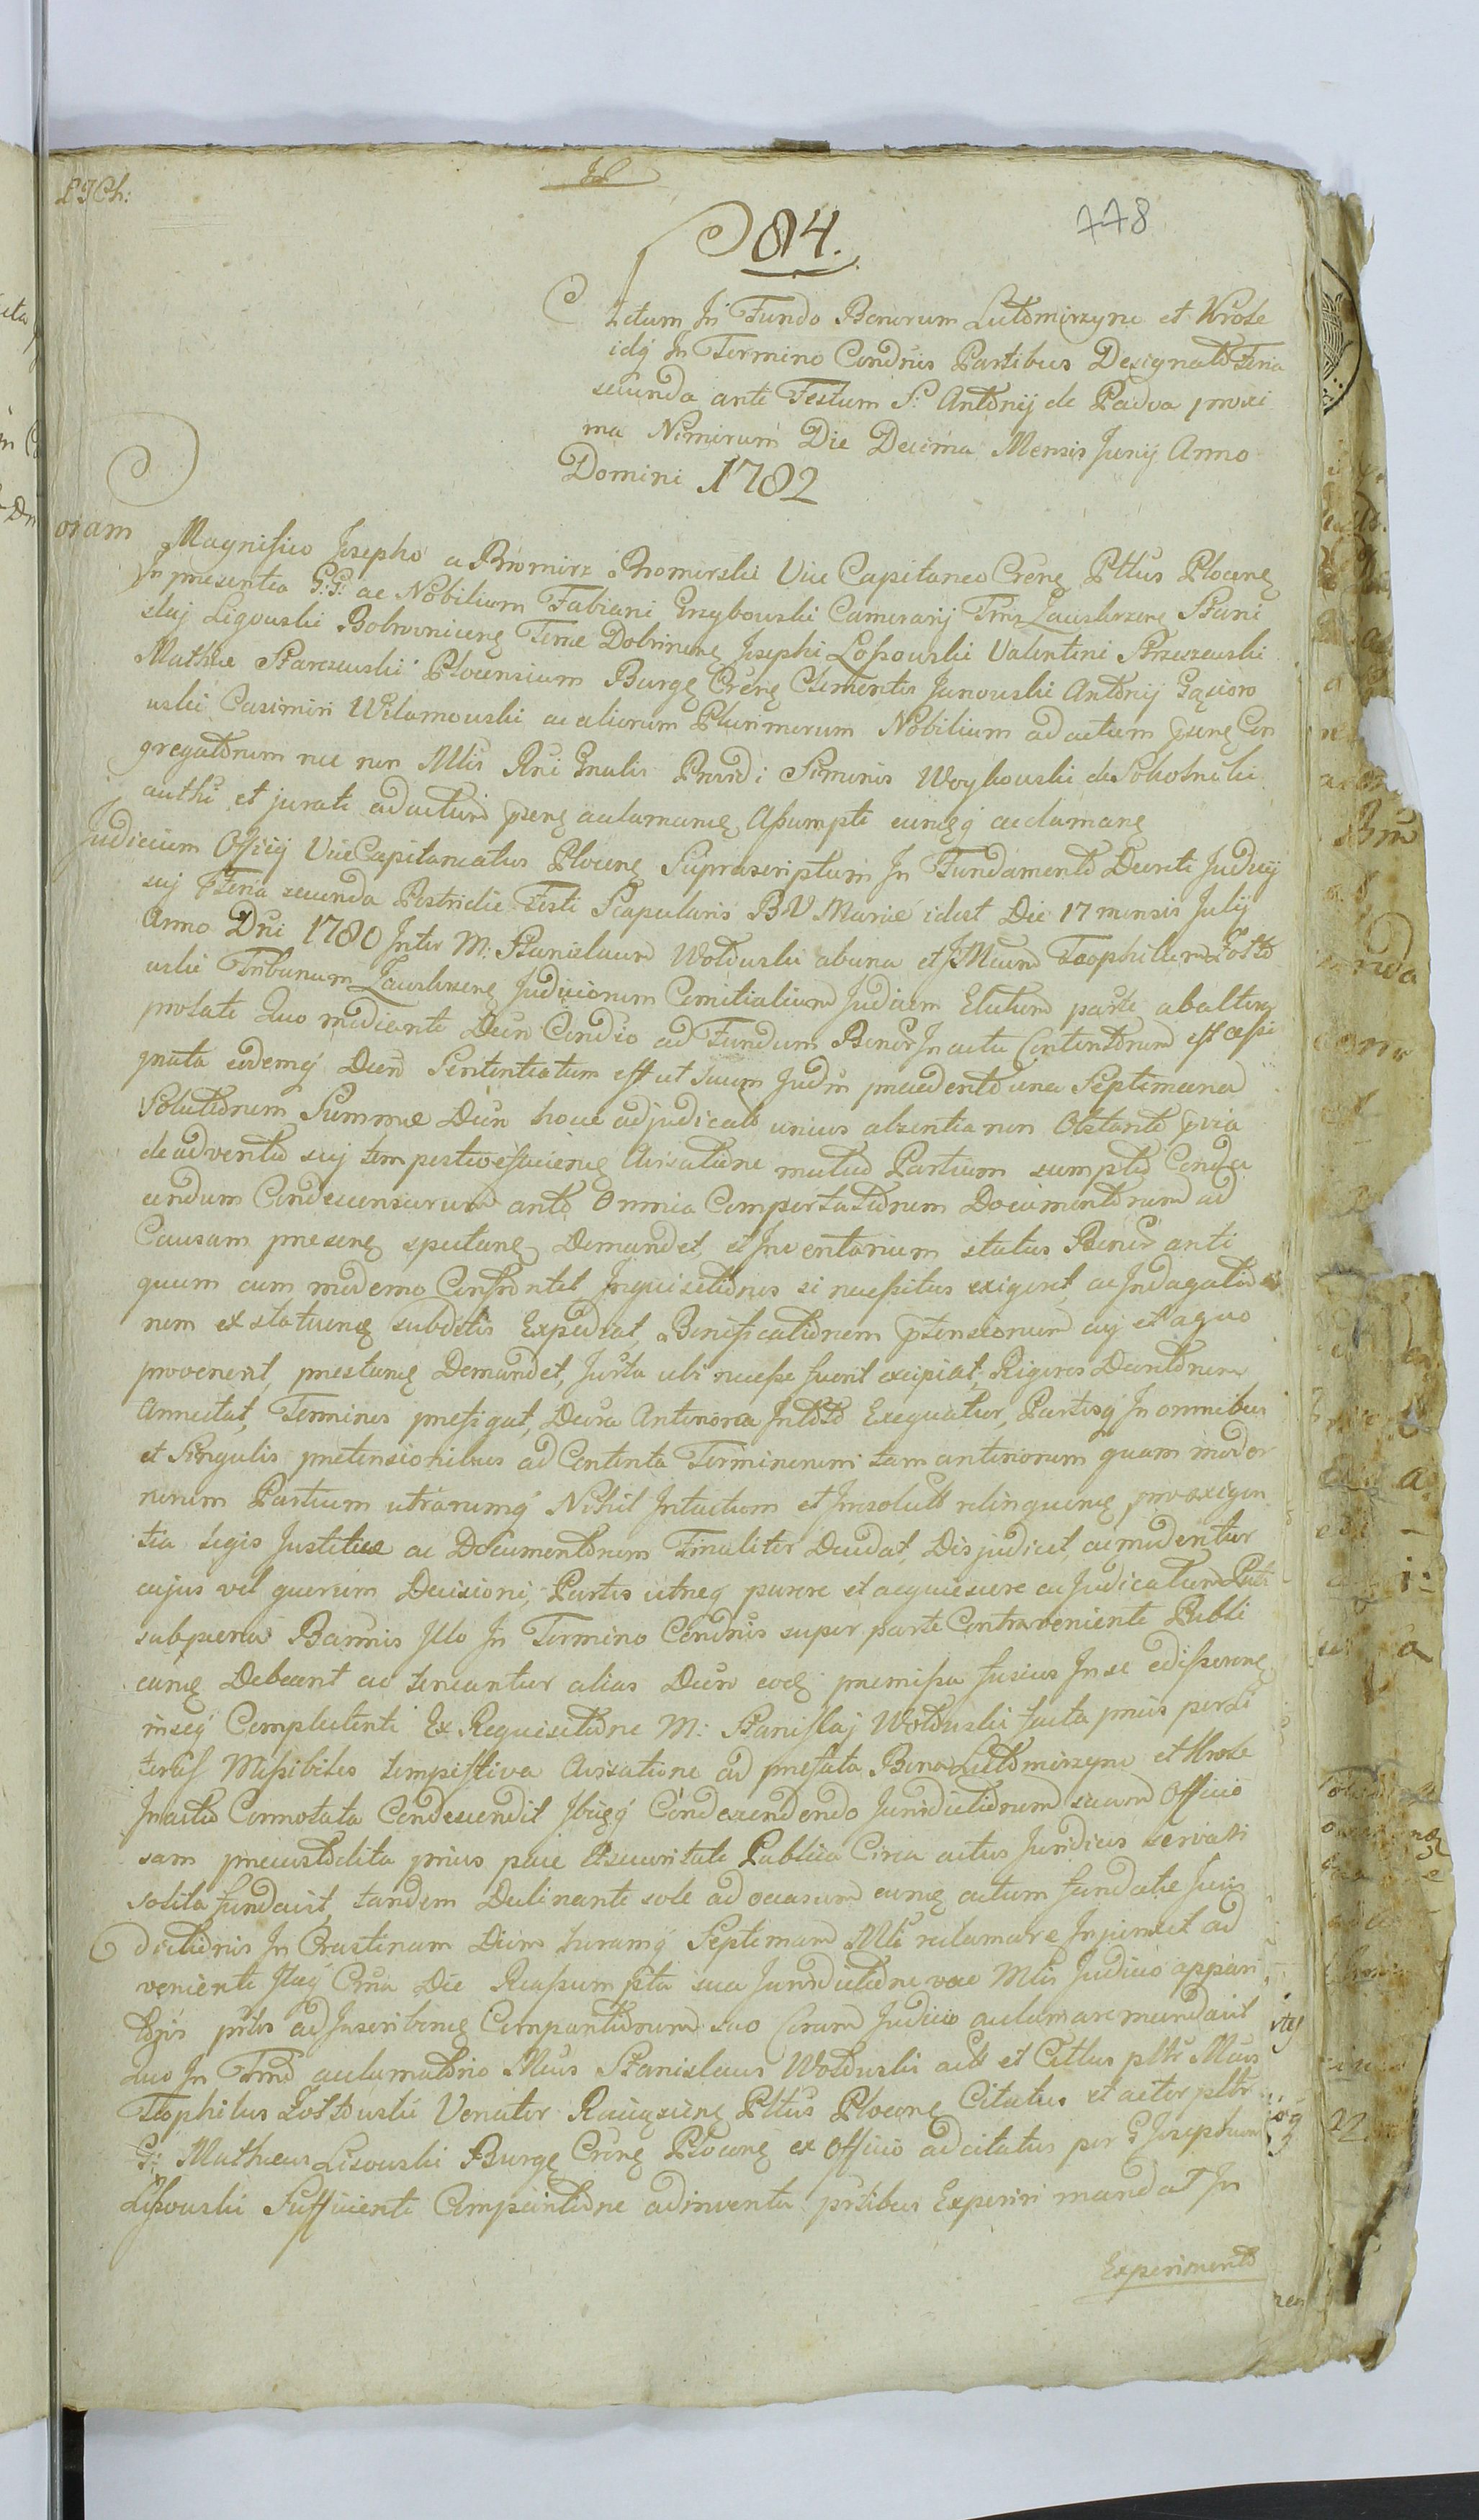 LJCh:
84.
778
Actum In Fundo Bonorum Lutomirzyno et Krole
idq In Termino Condnis Partibus Designato Feria
secunda ante Festum S: Antonij de Padva proxi
ma Nimirum Die Decima Mensis Junij Anno
Domini 1782
Coram Magnifico Josepho a Bromirz Bromirski Vice Capitaneo Crens Pttus Plocens
In presentia G:G: ac Nobilium Fabiani Grzybowski Camerarij Trris Zawskrzens Stani
slaj Ligowski Bobrownicens Terrae Dobrinens Josephi Lossowski Valentini Strzeszewski
Mathiae Starczewski Plocensium Burgs Crens Clementis Junowski Antonij Gąsioro
wski Casimiri Wilamowski ac aliorum Plurimorum Nobilium ad actum psens Con
gregatorum nec non Mtis Rni Gnalis Providi Simonis Woykowski de Sokolniki
authci et jurati ad actum psens acclamans Assumpti eumqg acclamans
Judicium Officij ViceCapitaneatus Plocens Suprascriptum In Fundamento Decreti Judicij
sui Feria secunda Postridie Festi Scapularis B V Mariae idest Die 17 mensis Julij
Anno Dni 1780 Inter M: Stanislaum Wotowski abuna et M Teophilum Zotto
wski Tribunum Zawskrzens Judiciorum Comitialium Judicem Electum parte ab altera
prolati Quo mediante Decro Condio ad Fundum Bonor In actu Contentorum est assi
gnata eodemq Decro Sententiatum est ut suum Judm praecedento una Septimana
Solutionem Summae Decro hocce adjudicato unius absentia non Obstante pvia
de adventu sui tempestive faciens Avisatione mutuo Partium sumptu Conde
cendum Condescensurum ante Omnia Comportationem Documentorum ad
Causam presens spectans Demandet, et Inventarium status Bonor anti
quum cum moderno Confrontet Inquisitiones si necessitas exigeret ac Indagatio
nem ex statuens subditis Expediat, Bonificationem ptensionum cuj et aquo
provenerit, prestans Demandet, Jurta ubi necesse fuerit excipiat, Rigores Decretorum
Annectat, Terminos prefigat, Decra Anteriora Intoto Exequatur, Partesq In omnibus
et Singulis pretensionibus ad Contenta Terminorum tam anteriorum quam moder
norum Partium utrarumq Nihil Intactum et Insolutt relinquens pro exigen
tia Legis Justitiae ac Documentorum Finaliter Decidat, Disjudicet, ac
cujus vel quorum Decisioni, Partes utraeq parere et acquiescere
subpoena Bannis Illo In Termino Condnis super parte Contraveniente Publi
cans Debeant ac teneantur alias Decro eods premissa fusius In se edisserens
inseq Complectenti Ex Requisitione M: Stanislaj Wotowski facta prius per
Missibiles tempestiva Avisatione ad prefata Bona Lutomirzyno et Krole
In actu Connotata Condescendit Ibiqg Condescendendo Jurisdictionem suam Officio
sam praecustodita prius pace Asecuritate Publica Circa actus Juridicos servari
solita fundavit, tandem Declinante sole ad occasum eumq actum fundatae Juris
dictionis In Crastinam Diem horamq Septimam Mti reclamare Injunxit ad
veniente Itaq Crna Die Reassumpta sua Jurisdictione voce Mtis Judicio appari
toris prtes ad Inscribens Comparitionem suo Coram Judicio acclamare mandavit
Quo In Trno acclamatorio Mcus Stanislaus Wotowski actt et Cittus pltr Mcus
Teophilus Zottowski Venator Raciązens Pttus Plocens Citatus et actor pltr
G: Matheus Lisowski Burgs Crens Plocens ex Officio adcitatus per G Josephum
Lissowski Sufficiente Comparitione adinventa prtibus Experiri mandat In
Experimento